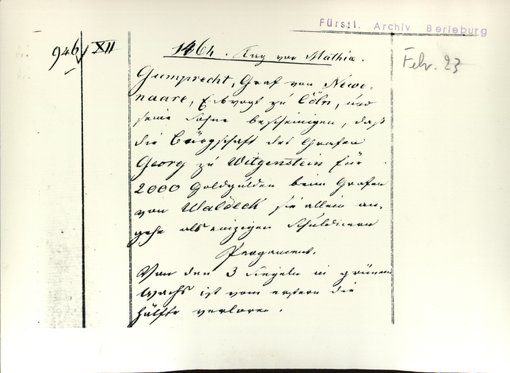 Fürstl. Archiv Berleburg
946/XII
1464. Tag vor Mathia.
Febr. 23
Gumprecht, Graf von Newe-
naare, Erbvogt zu Cöln, und
seine Söhne bescheinigen, daß
die Bürgschaft des Grafen
Georg zu Witgenstein für
2000 Goldgulden beim Grafen
von Waldeck sie allein an-
gehe als einzigen Schuldnern
Pergament.
Von den 3 Siegeln in grünem
Wachs ist vom ersten die
Hälfte verloren.